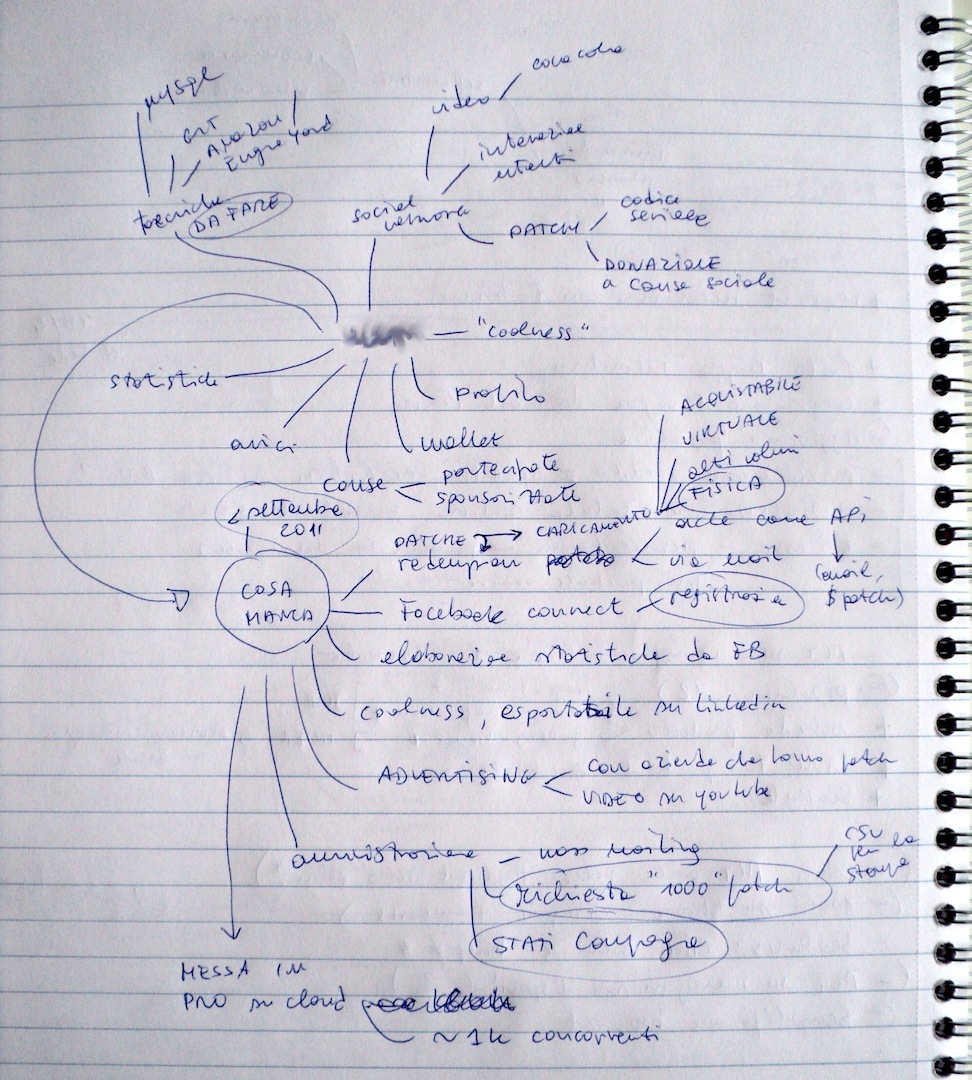 mysql
video
cocacola
GIT
Amazon
Engine Yard
interazione
utenti
tecniche
DA FARE
social
network
PATCH
codice
seriale
DONAZIONE
a cause sociale
"coolness"
statistiche
profilo
amici
wallet
cause
partecipate
sponsorizzate
ACQUISTABILE
VIRTUALE
FISICA
2 settembre
2011
PATCHE
CARICAMENTO
anche come API
redemption
via mail
(email,
$patch)
COSA
MANCA
Facebook connect
registrazione
elaborazione statistiche da FB
coolness, esportabile su linkedin
ADVERTISING
con aziende che hanno patch
VIDEO su youtube
amministrazione
mass mailing
csv
per la
stampa
richiesta "1000" patch
STATI Campagne
MESSA IN
PRO su cloud
~ 1k concorrenti